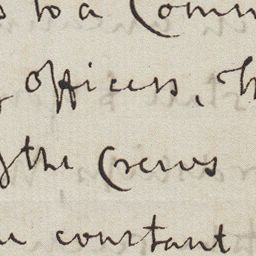 to a Comm
officers, Th
the Crews
constant